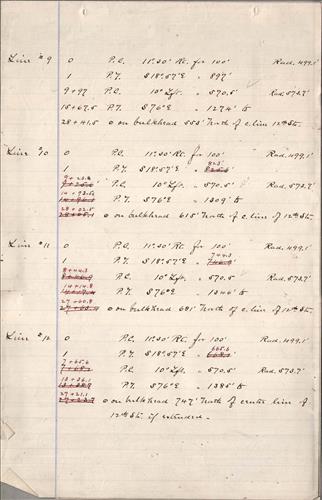 Line #9 0 P.C. 11°30' Rt. for 100' Rad. 499.1'
1 P.T. S18°57'E " 897'
9+97 P.C. 10° Lft. " 570.5' Rad. 573.7'
15+67.5 P.T. S76°E " 1274' to
28+41.5 0 on bulkhead 553' North of c. line 12th St.
Line #10 0 P.C. 11°30' Rt. for 100' Rad. 499.1'
1 P.T. S18°57'E "
9+23.2 P.C. 10° Lft. " 570.5' Rad. 573.7'
P.T. S76°E " 1309' to
0 on bulkhead 615' North of c. line of 12th St.
Line #11 0 P.C. 11°30' Rt. for 100' Rad. 499.1'
1 P.T. S18°57'E " 744.3
8+44.3 P.C. 10° Lft. " 570.5 Rad. 573.7'
14+14.8 P.T. S76°E " 1346' to
27+60.8 0 on bulkhead 681' North of c. line of 12th St.
Line #12 0 P.C. 11°30' Rt. for 100' Rad. 499.1'
1 P.T. S18°57'E " 665.6
7+65.6 P.C. 10° Lft. " 570.5' Rad. 573.7'
13+36.1 P.T. S76°E " 1385' to
27+21.1 0 on bulkhead 747' North of center line of
12th St. if extended.